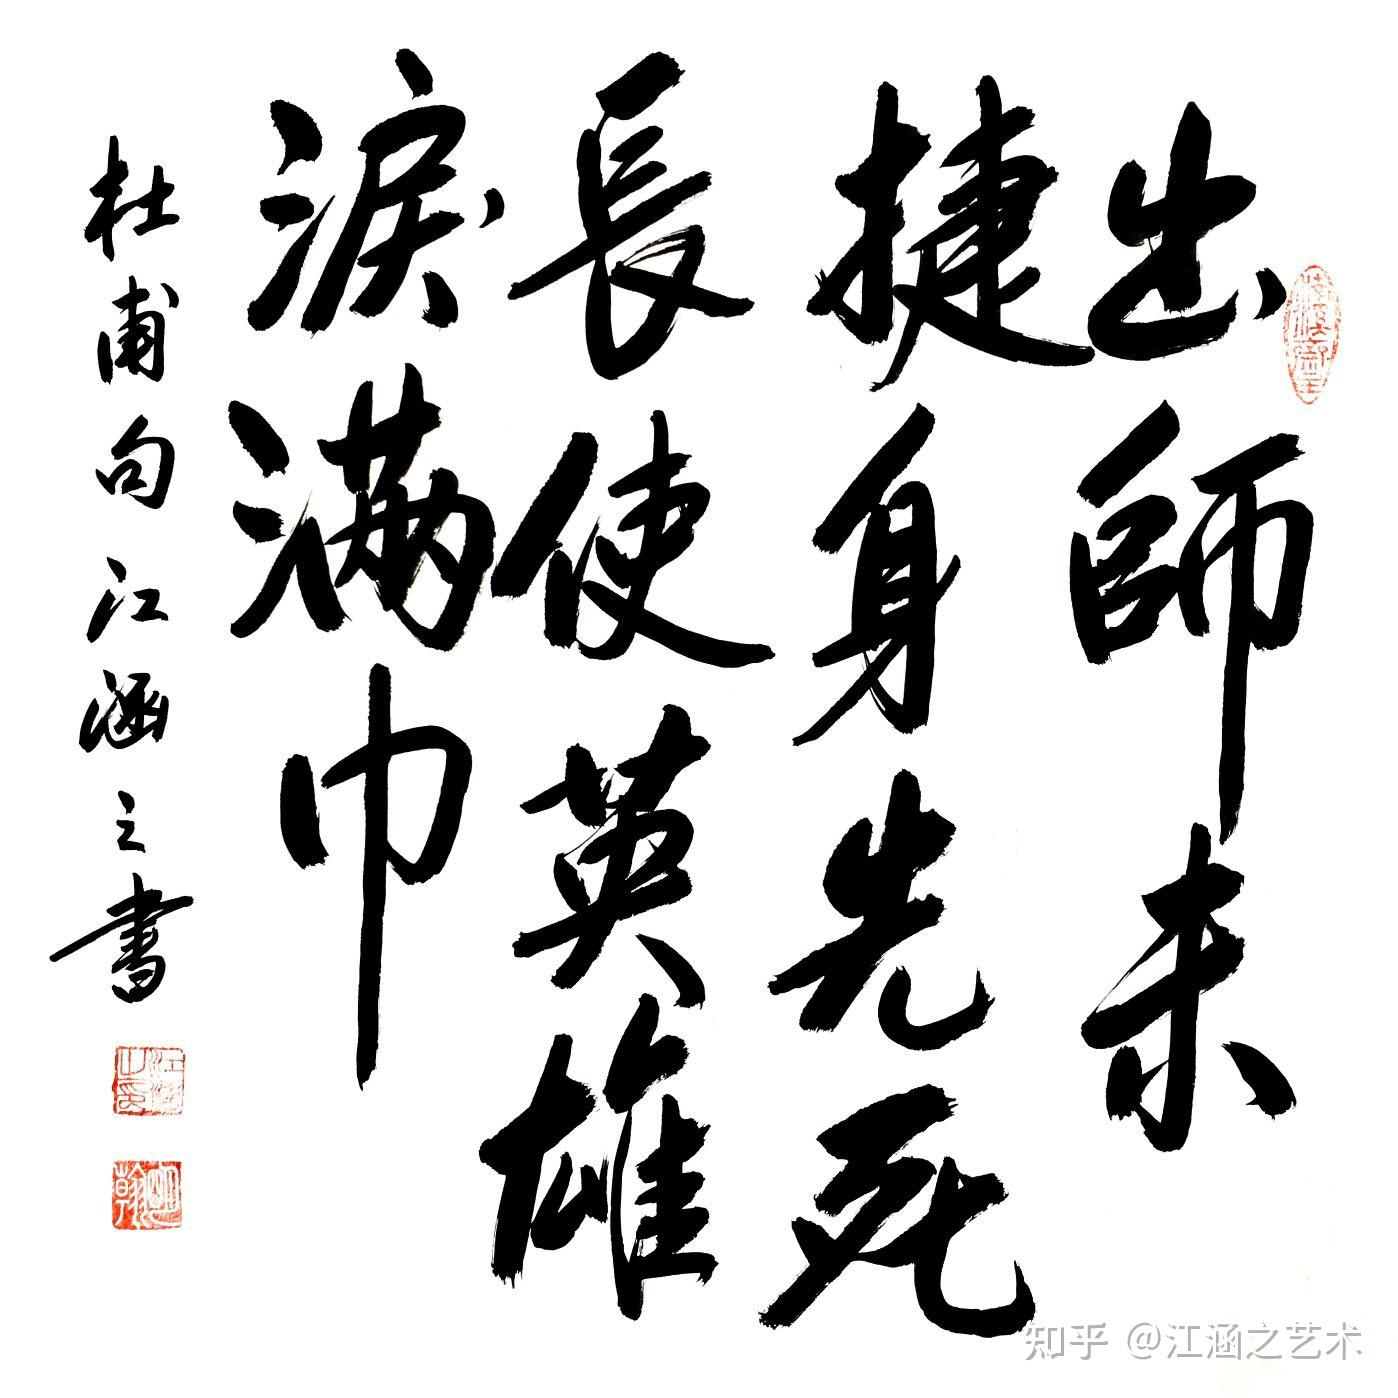 出師未
捷身先死
長使英雄
淚滿巾
杜甫句江涵之書
知乎 @江涵之艺术